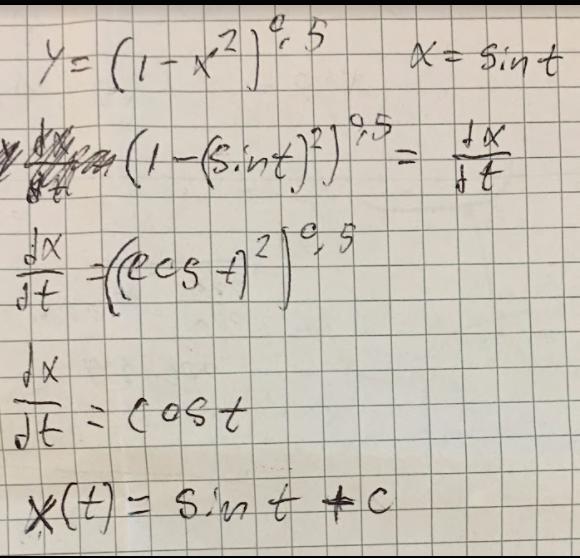 y = (1 - x²)^0,5    x = sin t
(1 - (sin t)²)^0,5 = dx/dt
dx/dt = ((cos t)²)^0,5
dx/dt = cos t
x(t) = sin t + c